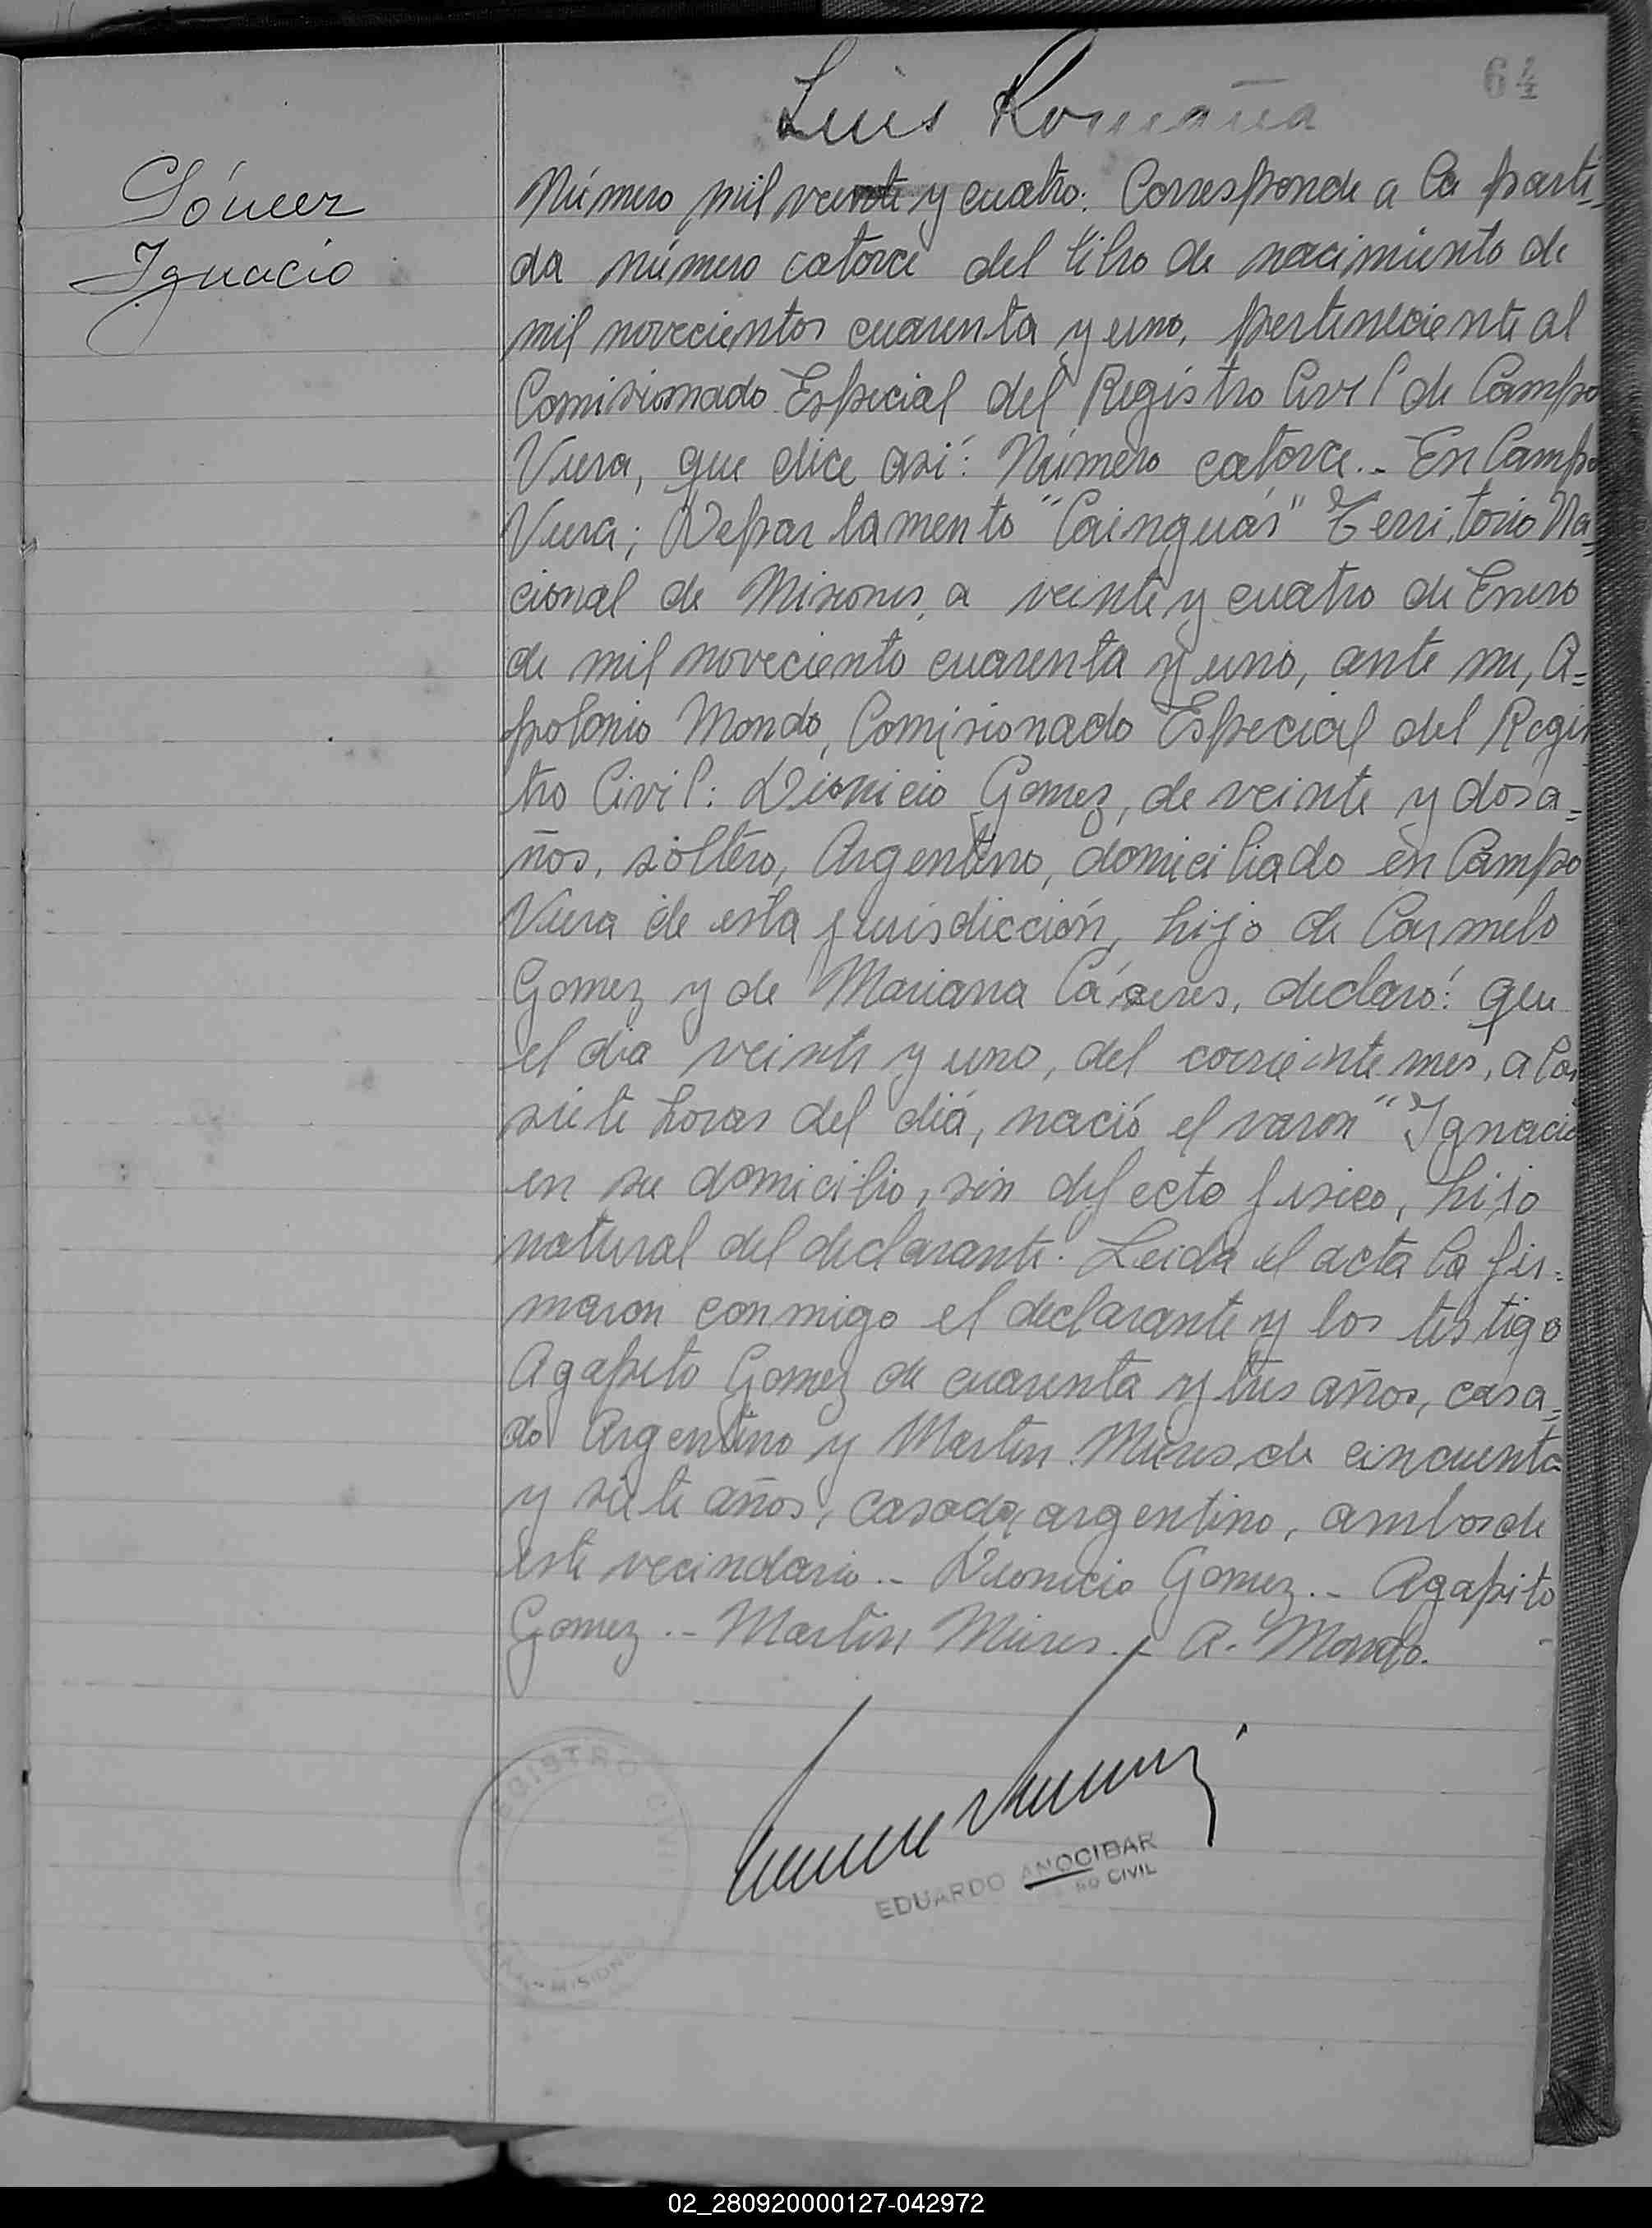 64
Luis Romaña
Gómez
Ignacio
Número mil veinte y cuatro: Corresponde a la parti=
da número catorce del libro de nacimiento de
mil novecientos cuarenta y uno, perteneciente al
Comisionado Especial del Registro Civil de Campo
Viera, que dice asi: Número catorce.- En Campo
Viera; Departamento "Cainguás" Territorio Na=
cional de Misiones, a veinte y cuatro de Enero
de mil noveciento cuarenta y uno, ante mi, A=
polonio Mondo, Comisionado Especial del Regis
tro Civil: Dionicio Gomez, de veinte y dos a=
ños, soltero, Argentino, domiciliado en Campo
Viera de esta jurisdicción, hijo de Carmelo
Gomez y de Mariana Cáseres, declaró: que
el dia veinte y uno, del corriente mes, a las
siete horas del diá, nació el varon "Ignacio
en su domicilio, sin defecto fisico, hijo
natural del declarante. Leida el acta la fir=
maron conmigo el declarante y los testigo
Agapito Gomez de cuarenta y tres años, casa=
do Argentino y Martin Mieres, de cincuenta
y siete años, casado, argentino, ambos de
este vecindario.- Dionicio Gomez.- Agapito
Gomez.- Martin Mieres.- A. Mondo.
REGISTRO CIVIL
MISIONES
EDUARDO ANOCIBAR
RO CIVIL
02_280920000127-042972